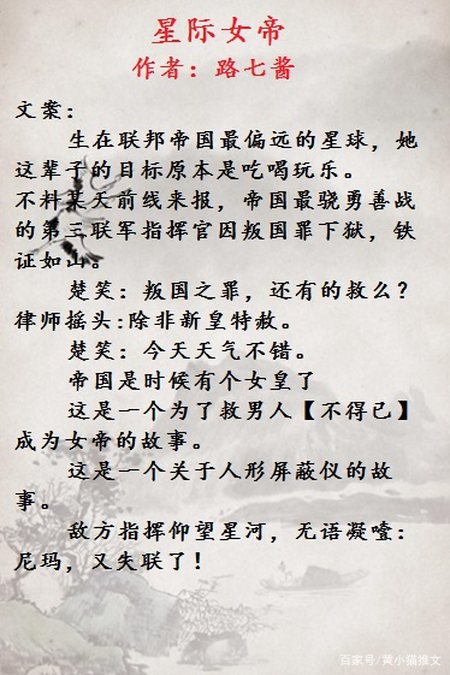 星际女帝
作者：路七酱
文案：
生在联邦帝国最偏远的星球，她
这辈子的目标原本是吃喝玩乐。
不料某天前线来报，帝国最骁勇善战
的第三联军指挥官因叛国罪下狱，铁
证如山。
楚笑：叛国之罪，还有的救么？
律师摇头:除非新皇特赦。
楚笑：今天天气不错。
帝国是时候有个女皇了
这是一个为了救男人【不得已】
成为女帝的故事。
这是一个关于人形屏蔽仪的故
事。
敌方指挥仰望星河，无语凝噎：
尼玛，又失联了！
百家号/黄小猫推文